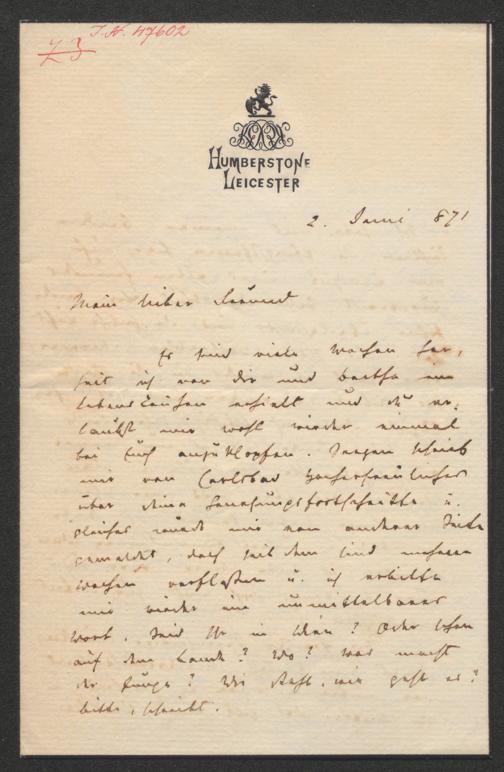 I. N. 47602
23
HUMBERSTONE
LEICESTER
2. Juni 871
Mein lieber Freund
Es sind viele Wochen her,
seit ich von dir und Bertha ein
Lebenszeichen erhielt und du er-
laubst mir wohl wieder einmal
bei Euch anzuklopfen. Jungen schrieb
mir von Carlsbad Hocherfreuliches
über deine Genesungsfortschritte u.
gleiches wurde mir von anderer Seite
gemeldet, doch seitdem sind mehrere
Wochen verflossen u. ich erbitte
mir wieder ein unmittelbares
Wort. Seid Ihr in Wien? Oder schon
auf dem Lande? Wo? Was macht
der Junge? Wie steht, wie geht es?
Bitte, schreibt.